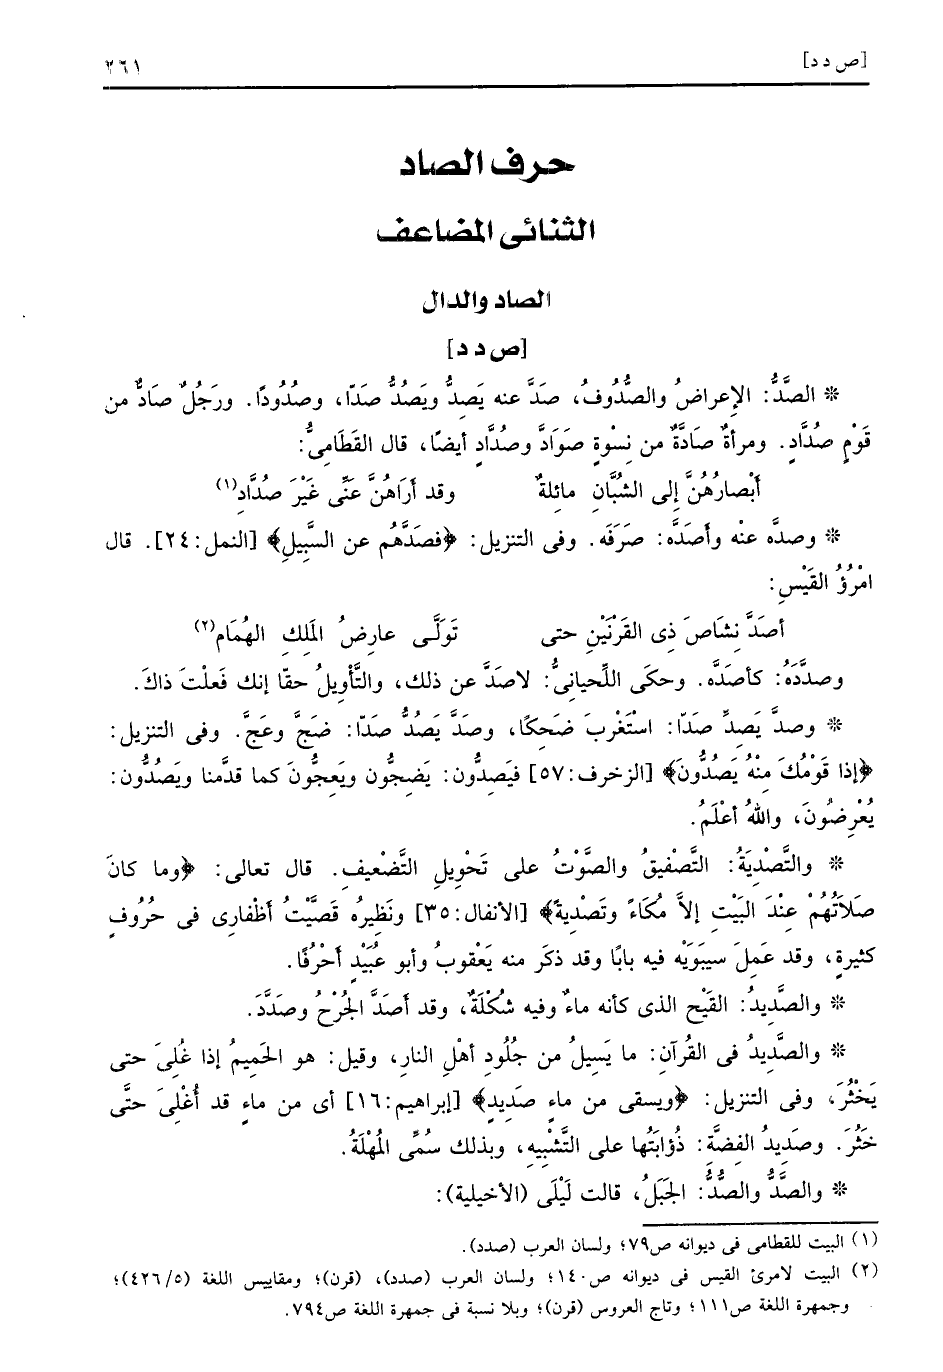 [ص د د] ٢٦١
حرف الصاد
الثنائى المضاعف
الصاد والدال
[ص د د]
* الصَّدُّ: الإعراضُ والصُّدُوفُ، صدَّ عنه يَصِدُّ ويَصُدُّ صَدّا، وصُدُودًا. ورَجُلٌ صَادٌّ من
قَوْمٍ صُدَّادٍ. ومرأةٌ صَادَّةٌ من نِسْوةٍ صَوَادَّ وصُدَّادٍ أيضًا، قال القَطَامِىُّ:
أَبْصارُهُنَّ إلى الشُّبَّانِ مائلةٌ وقد أَرَاهُنَّ عَنِّى غَيْرَ صُدَّادِ(١)
* وصدَّه عنْه وأصَدَّه: صَرَفَه. وفى التنزيل: ﴿فصَدَّهُم عن السَّبِيلِ﴾ [النمل:٢٤]. قال
امْرُؤُ القَيْسِ:
أصَدَّ نشَاصَ ذِى القَرْنَيْنِ حتى تَوَلَّـى عارِضُ المَلِكِ الهُمَامِ(٢)
وصدَّدَهُ: كأصَدَّه. وحكَى اللِّحيانِىُّ: لاصدَّ عن ذلك، والتَّأْوِيلُ حقّا إنك فَعلْتَ ذاكَ.
* وصدَّ يَصِدُّ صَدّا: اسْتَغْربَ ضَحِكًا، وصَدَّ يَصُدُّ صَدّا: ضَجَّ وعَجَّ. وفى التنزيل:
﴿إذا قَوْمُكَ مِنْهُ يَصُدُّونَ﴾ [الزخرف:٥٧] فيَصِدُّون: يَضجُّون ويَعجُّونَ كما قدَّمنا ويَصُدُّون:
يُعْرِضُونَ، واللهُ أعْلَمُ.
* والتَّصْدِيَةُ: التَّصْفيقُ والصَّوْتُ على تَحْوِيلِ التَّضْعيف. قال تعالى: ﴿وما كانَ
صَلاَتُهُمْ عِنْدَ البَيْتِ إلاَّ مُكَاءً وتَصْدِيةً﴾ [الأنفال:٣٥] ونَظِيرُه قَصَّيْتُ أظْفارِى فى حُرُوف
كثيرةٍ، وقد عَمِلَ سيبَوَيْه فيه بابًا وقد ذكَر منه يَعْقوبُ وأبو عُبَيْدٍ أحْرُفًا.
* والصَّديدُ: القَيْح الذى كأنه ماءٌ وفيه شُكْلَةٌ، وقد أصَدَّ الجُرْحُ وصَدَّدَ.
* والصَّدِيدُ فى القُرآنِ: ما يَسِيلُ من جُلُودِ أهْلِ النارِ، وقيل: هو الحَمِيمُ إذا غُلِىَ حتى
يَخْثُرَ، وفى التنزيل: ﴿ويسقى من ماءٍ صَدِيدٍ﴾ [إبراهيم:١٦] أى من ماءٍ قد أُغْلِىَ حتَّى
خَثُرَ. وصَدِيدُ الفِضَّة: ذُؤابَتُها على التَّشْبِيه، وبذلك سُمِّى المُهْلَةُ.
* والصَّدُّ والصُّدُّ: الجَبَلُ، قالت لَيْلَى (الأخيلية):
(١) البيت للقطامى فى ديوانه ص٧٩؛ ولسان العرب (صدد).
(٢) البيت لامرئ القيس فى ديوانه ص١٤٠؛ ولسان العرب (صدد)، (قرن)؛ ومقاييس اللغة (٤٢٦/٥)؛
وجمهرة اللغة ص١١١؛ وتاج العروس (قرن)؛ وبلا نسبة فى جمهرة اللغة ص٧٩٤.